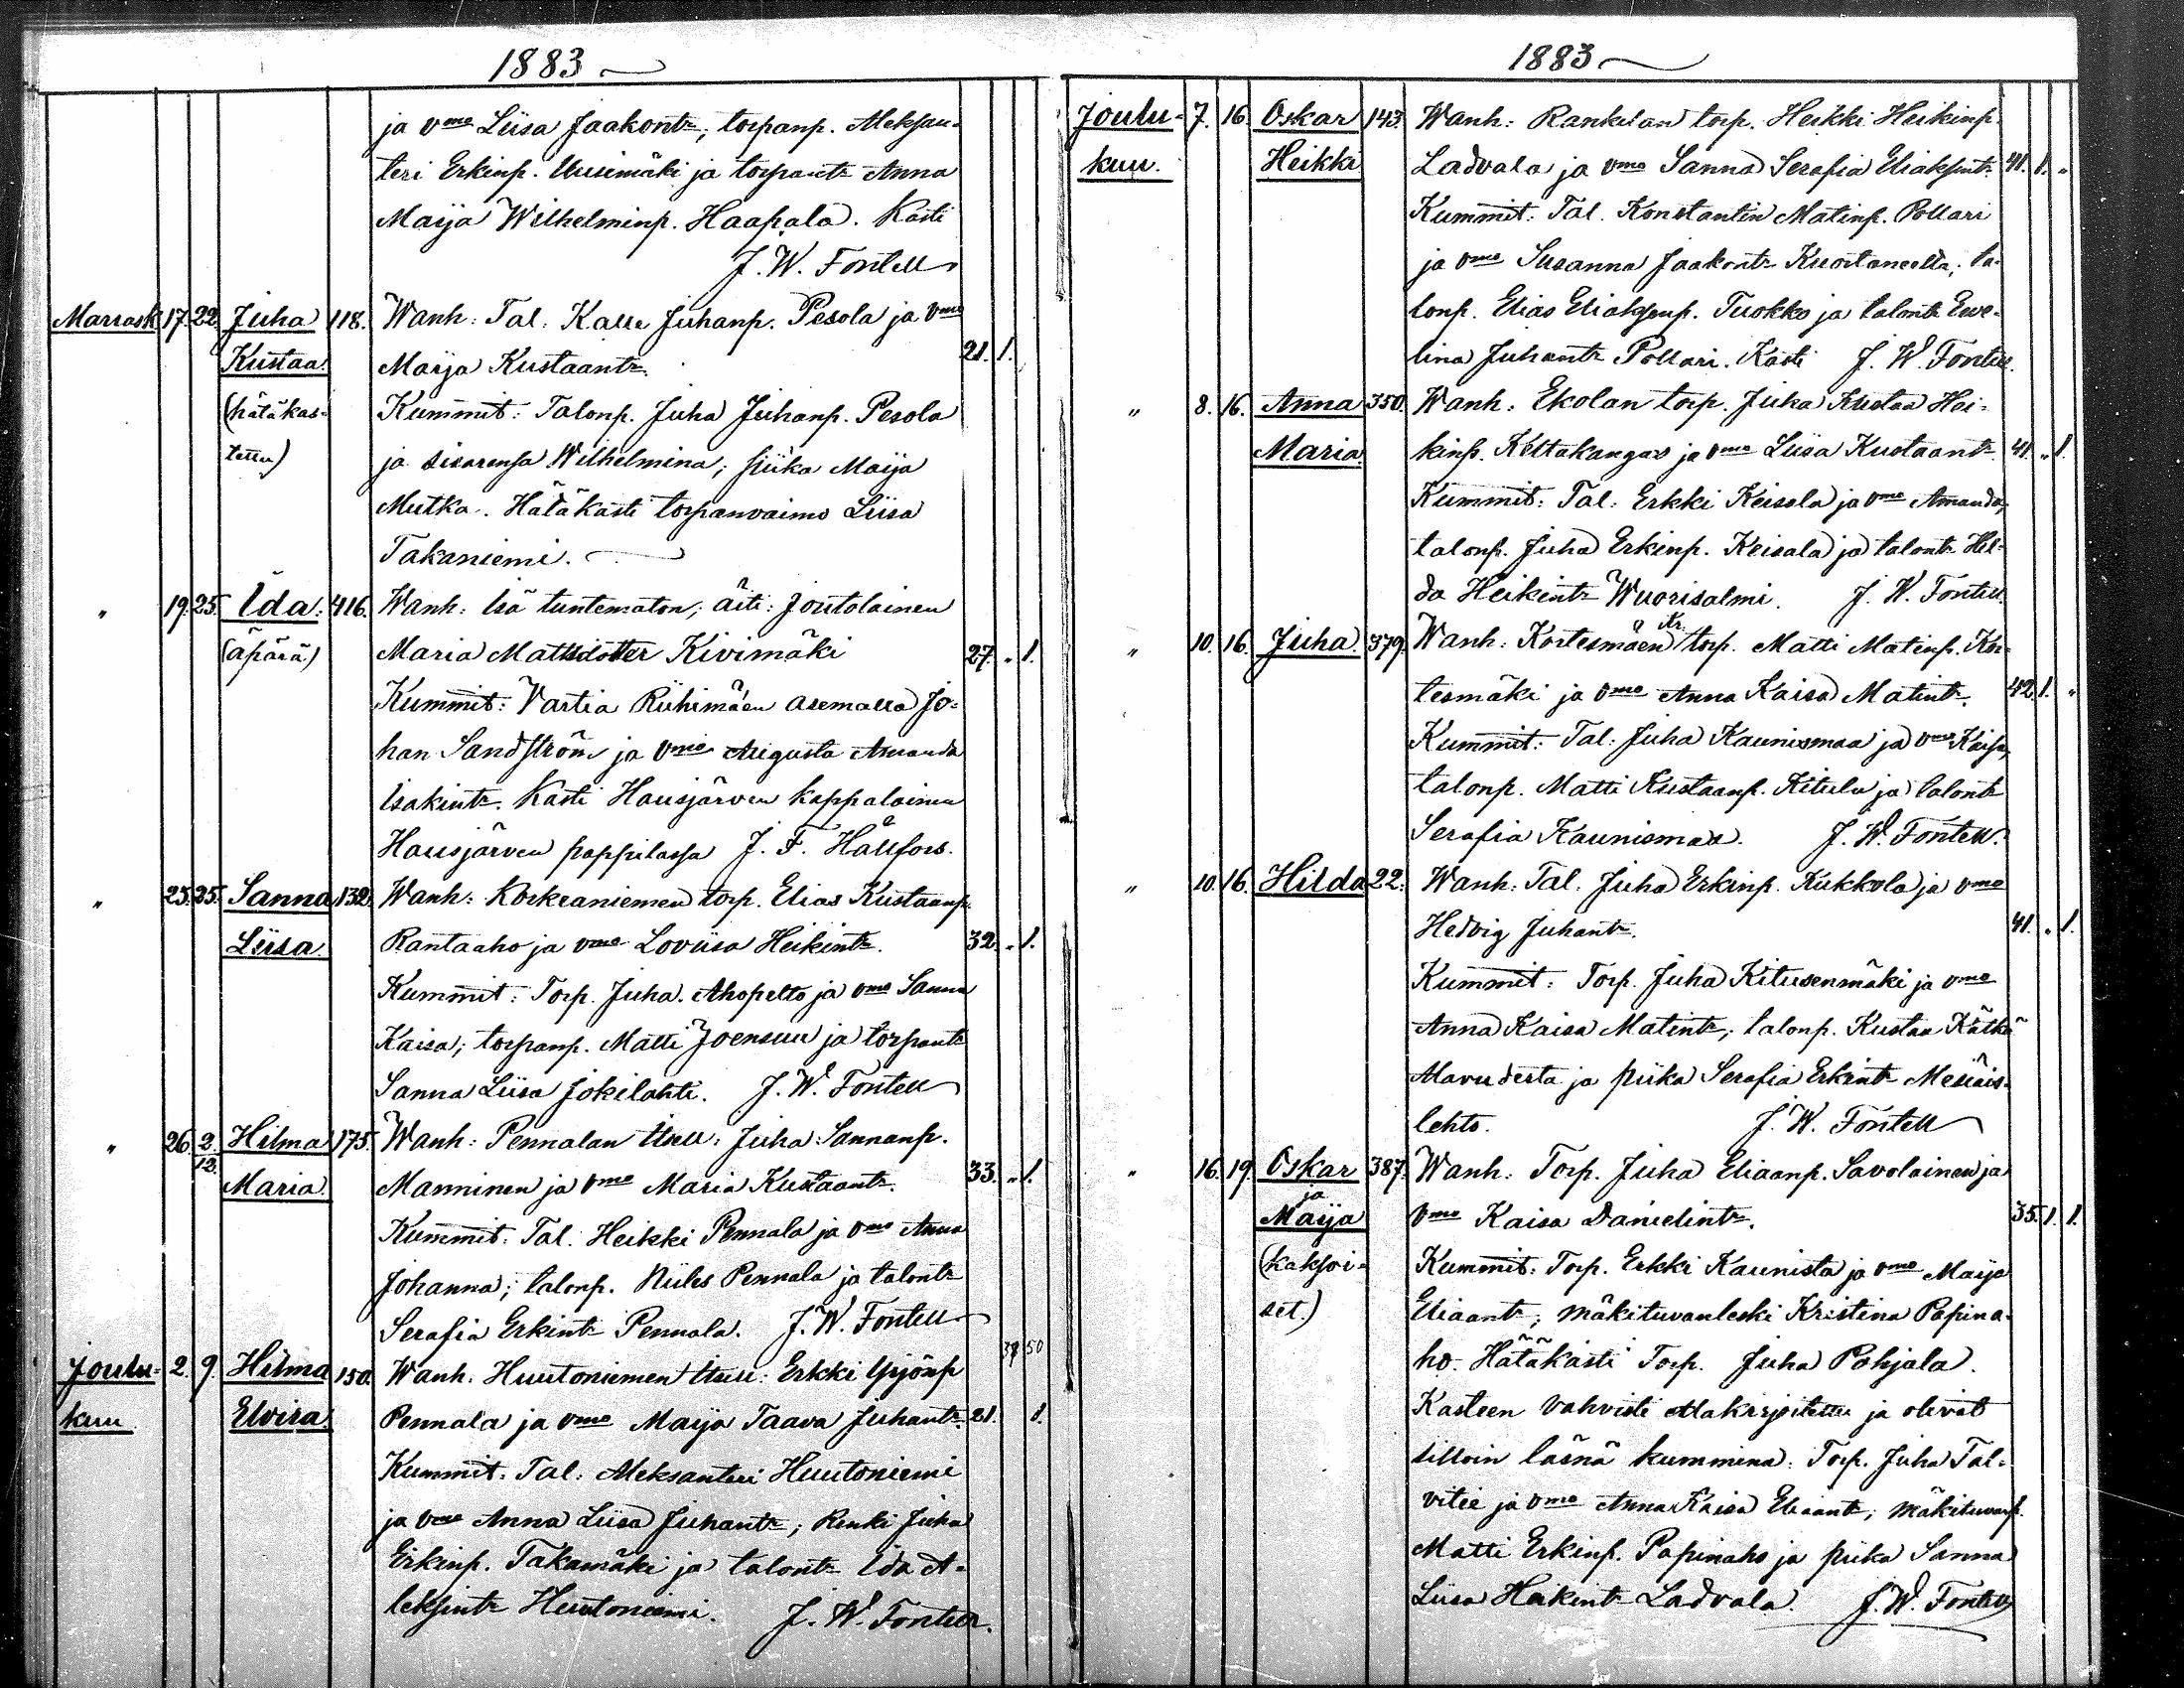 1883
ja vmo Liisa Jaakontr; torpanp. Aleksan-
teri Erkinp. Uusimäki ja torpantr Anna
Maija Wilhelminp. Haapala. Kasti
J. W. Fontell
Marrask. 17. 22. Juha 118. Wanh: Tal. Kalle Juhanp. Pesola ja vmo
Kustaa. Maija Kustaantr. 21. 1.
(hätäkas- Kummit: Talonp. Juha Juhanp. Pesola
tettu) ja sisarensa Wilhelmina; piika Maija
Mutka. Hätäkasti torpanvaimo Liisa
Takaniemi.
" 19. 25. Ida. 416. Wanh: Isä tuntematon; äiti: Joutolainen
(äpärä) Maria Mattsdotter Kivimäki 27. " 1.
Kummit: Vartia Riihimäen asemalla Jo-
han Sandström ja vmo Augusta Amanda
Isakintr. Kasti Hausjärven kappalainen
Hausjärven pappilassa J. F. Hällfors.
" 25. 25. Sanna 132. Wanh: Korkeaniemen torp. Elias Kustaanp.
Liisa. Rantaaho ja vmo Loviisa Heikintr. 32. " 1.
Kummit: Torp. Juha Ahopelto ja vmo Sanna
Kaisa; torpanp. Matti Joensuu ja torpantr
Sanna Liisa Jokilahti. J. W. Fontell
" 26. 2/12. Hilma 175. Wanh: Pennalan Itsell: Juha Sannanp.
Maria. Manninen ja vmo Maria Kustaantr. 33. " 1.
Kummit: Tal. Heikki Pennala ja vmo Anna
Johanna; talonp. Niiles Pennala ja talontr
Serafia Erkintr Pennala. J. W. Fontell
39 50
Joulu- 2. 9. Hilma 150. Wanh. Huutoniemen Itsell: Erkki Yrjönp
kuu. Elvira. Pennala ja vmo Maija Taava Juhantr. 21. 1.
Kummit: Tal: Aleksanteri Huutoniemi
ja vmo Anna Liisa Juhantr; Renki Juha
Erkinp. Takamäki ja talontr Ida A-
leksintr Huutoniemi. J. W. Fontell.
1883
Joulu- 7. 16. Oskar 143. Wanh: Rankilan torp. Heikki Heikinp.
kuu. Heikki Ladvala ja vmo Sanna Serafia Eliaksentr. 41. 1. "
Kummit: Tal. Konstantin Matinp. Pollari
ja vmo Susanna Jaakontr Kuortaneelta; ta-
lonp. Elias Eliaksenp. Tuokko ja talontr Eve-
lina Juhantr Pollari. Kasti J. W. Fontell.
" 8. 16. Anna 350. Wanh: Ekolan torp. Juha Kustaa Hei-
Maria. kinp. Kettakangas ja vmo Liisa Kustaantr. 41. " 1.
Kummit: Tal: Erkki Keisala ja vmo Amanda;
talonp. Juha Erkinp. Keisala ja talontr Hil-
da Heikintr Wuorisalmi. J. W. Fontell.
" 10. 16. Juha. 379. Wanh: Kortesmäen torp. Matti Matinp. Kor-
tesmäki ja vmo Anna Kaisa Matintr. 42. 1. "
Kummit: Tal: Juha Kaunismaa ja vmo Kaisa;
talonp. Matti Kustaanp. Kitula ja talontr
Serafia Kaunismaa. J. W. Fontell.
" 10. 16. Hilda 22. Wanh: Tal. Juha Erkinp. Kukkola ja vmo
Hedvig Juhantr. 41. " 1.
Kummit: Torp. Juha Kitusenmäki ja vmo
Anna Kaisa Matintr; talonp. Kustaa Kätkä
Alavudesta ja piika Serafia Erkintr Mesiäis-
lehto. J. W. Fontell
" 16. 19. Oskar 387. Wanh: Torp. Juha Eliaanp. Savolainen ja
ja
Maija vmo Kaisa Danielintr. 35. 1. 1.
(kaksoi- Kummit: Torp. Erkki Kaunista ja vmo Maija
set.) Eliaantr; mäkituvanleski Kristina Papina-
ho. Hätäkasti Torp. Juha Pohjala.
Kasteen vahvisti Allakirjoitettu ja olivat
silloin läsnä kummina: Torp. Juha Tal-
vitie ja vmo Anna Kaisa Eliaantr; mäkituvanp.
Matti Erkinp. Papinaho ja piika Sanna
Liisa Heikintr Ladvala. J. W. Fontell